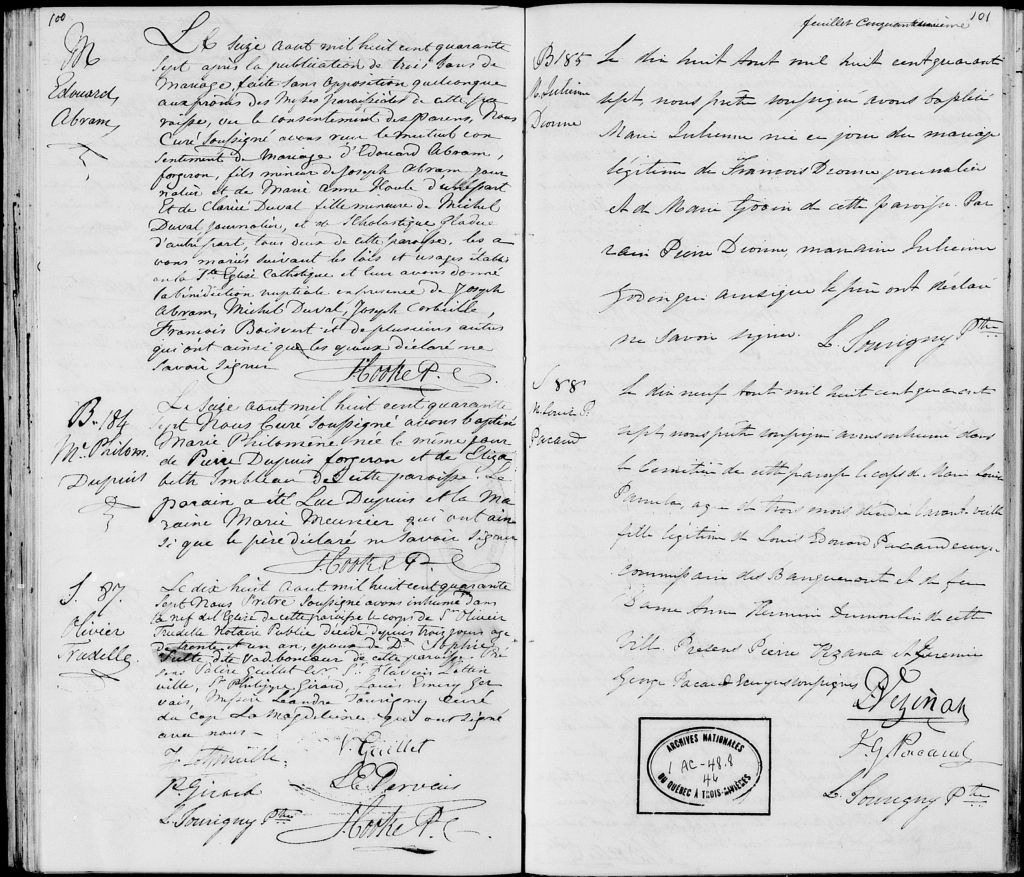 100
M
Edouard
Abram
Le seize aout mil huit cent quarante
sept après la publication de trois bans de
Mariage, faite sans opposition quelconque
aux prônes des Messes paroissiales de cette pa
roisse, vu le consentement des parens, Nous
Curé Soussigné avons reçu le mutuel con
sentement de Mariage d'Edouard Abram,
forgeron, fils mineur de Joseph Abram jour
nalier et de Marie Anne Houle d'une part
Et de Clarice Duval fille mineure de Michel
Duval journalier, et de Scholastique
d'autre part, tous deux de cette paroisse, les a
vons mariés suivant les lois et usages établis
en la Ste Eglise Catholique et leur avons donné
la bénédiction nuptiale en presence de Joseph
Abram, Michel Duval, Joseph Corbeille,
Francois Boisvert et de plusieurs autres
qui ont ainsi que les epoux déclaré ne
savoir signer
J Cooke P. C.
B. 184
Me Philom.
Dupuis
Le Seize aout mil huit cent quarante
Sept Nous Curé Soussigné avons baptisé
Marie Philomène née le même jour
de Pierre Dupuis forgeron et de Eliza
beth Imbleau de cette paroisse. Le
parain a été Luc Dupuis et la Ma
raine Marie Meunier qui ont ain
si que le père déclaré ne Savoir Signer
J Cooke P.
S. 87.
Olivier
Trudelle
Le dix huit Aout mil huit cent quarante
sept Nous Prêtre Soussigné avons inhumé dans
la nef de l'Eglise de cette paroisse le corps de Sr Olivier
Trudelle Notaire Public décédé depuis trois jours age
de trente et un an, epoux de De Sophie
dite Vadboncoeur de cette paroisse. Pré
sens Valère Guillet Ecr. Sr Flavien Lottin
ville, Sr Philippe Girard, Louis Emery Ger
vais, Messire Léandre Tourigny Curé
du cap La Magdeleine qui ont signé
avec nous —
F Lottinville.
V. Guillet
P. Girard
L E Gervais
L. Tourigny Ptre
J Cooke P. C
101
feuillet Cinquantunième
B 185
M. Julienne
Dionne
Le dix huit Aout mil huit cent quarante
sept, nous prêtre soussigné avons baptisé
Marie Julienne née ce jour du mariage
légitime de Francois Dionne journalier
et de Marie de cette paroisse. Par
rain Pierre Dionne, marraine Julienne
Godon qui ainsi que le père ont déclaré
ne savoir signer.
L. Tourigny Ptre
S 88
M. Louise P.
Pacaud
Le dix neuf Aout mil huit cent quarante
sept, nous prêtre soussigné avons inhumé dans
le cemitière de cette paroisse le corps de Marie Louise
Pamela, agee de trois mois décédée l'avant-veille
fille légitime de Louis Edouard Pacaud ecuyer
commissaire des Banqueroutes et de feu
Dame Anne Hermine Dumoulin de cette
ville. Présens Pierre Vezina et
George Pacaud Ecuyers soussignés
P. Vezina
P. G. Pacaud
L. Tourigny Ptre
ARCHIVES NATIONALES
1 AC-48.8
46
DU QUÉBEC À TROIS-RIVIÈRES